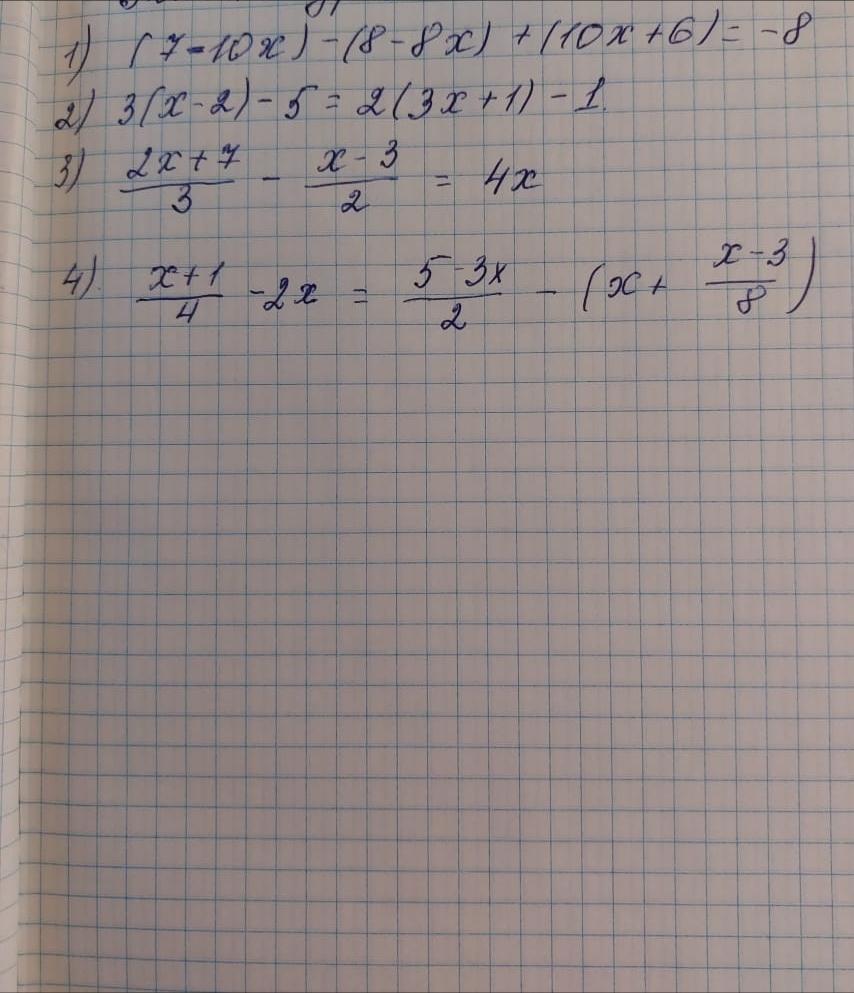 1) (7-10x)-(8-8x)+(10x+6)=-8
2) 3(x-2)-5=2(3x+1)-1.
3) (2x+7)/3 - (x-3)/2 = 4x
4). (x+1)/4 -2x = (5-3x)/2 - (x+ (x-3)/8)